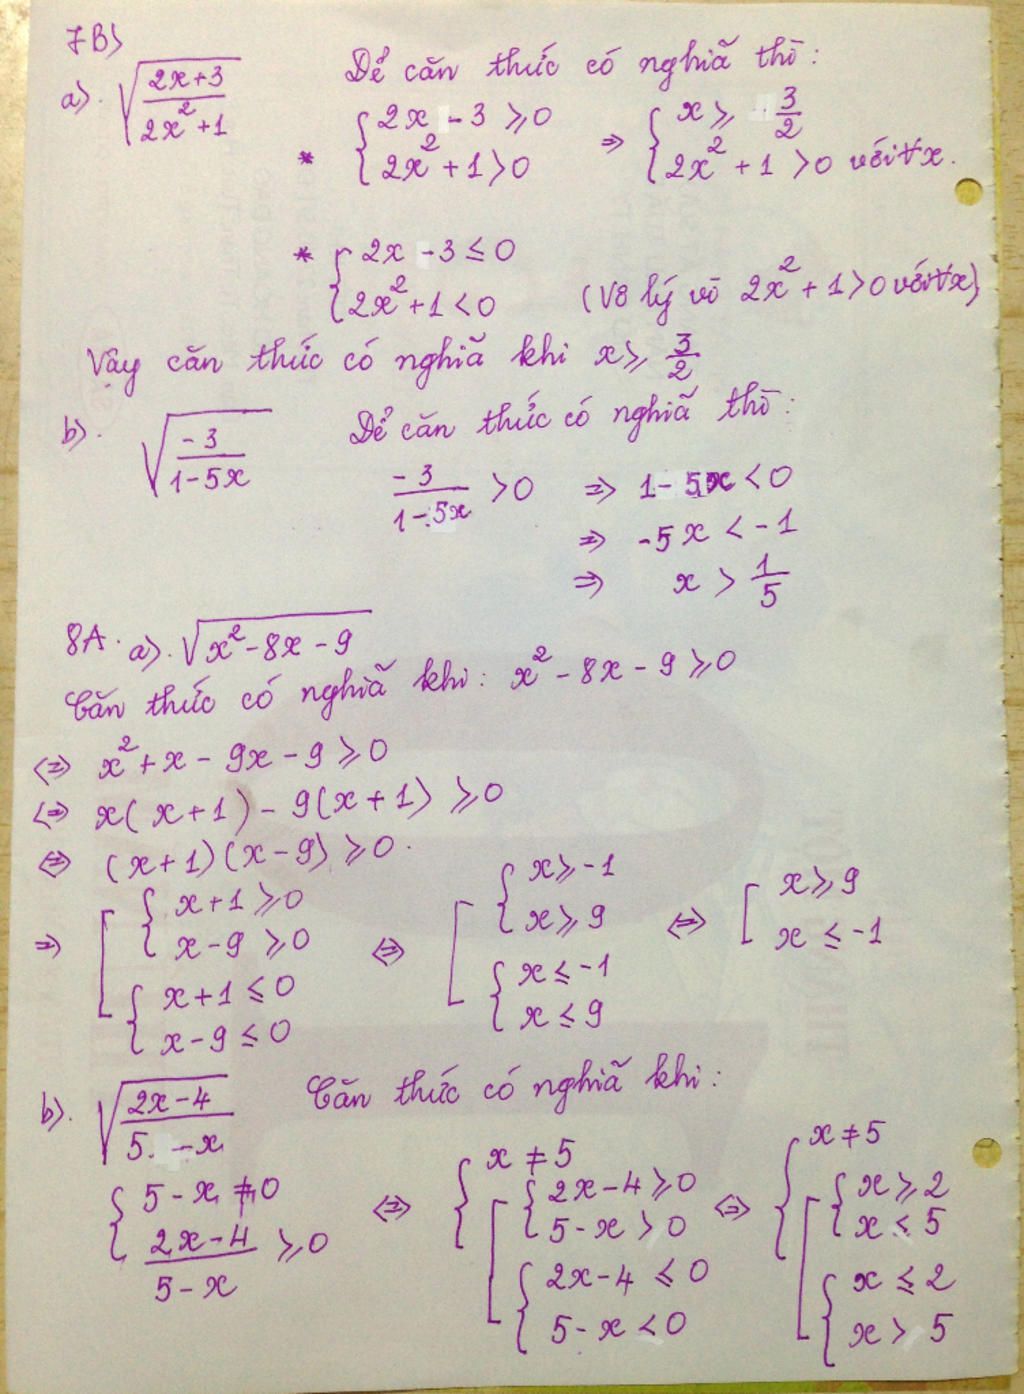 7B)
a). √((2x+3)/(2x²+1)) Để căn thức có nghiã thì:
* { 2x - 3 ⩾ 0 ; 2x² + 1 > 0 ⇒ { x ⩾ 3/2 ; 2x² + 1 > 0 với ∀x.
* { 2x - 3 ≤ 0 ; 2x² + 1 < 0 (Vô lý vì 2x² + 1 > 0 với ∀x)
Vậy căn thức có nghiã khi x ⩾ 3/2
b). √(-3/(1-5x)) Để căn thức có nghiã thì:
-3/(1-5x) > 0 ⇒ 1 - 5x < 0
⇒ -5x < -1
⇒ x > 1/5
8A. a). √(x² - 8x - 9)
Căn thức có nghiã khi: x² - 8x - 9 ⩾ 0
⇔ x² + x - 9x - 9 ⩾ 0
⇔ x(x+1) - 9(x+1) ⩾ 0
⇔ (x+1)(x-9) ⩾ 0.
⇒ [ { x+1 ⩾ 0 ; x-9 ⩾ 0 ; { x+1 ≤ 0 ; x-9 ≤ 0 ⇔ [ { x ⩾ -1 ; x ⩾ 9 ; { x ≤ -1 ; x ≤ 9 ⇔ [ x ⩾ 9 ; x ≤ -1
b). √((2x-4)/(5.-x)) Căn thức có nghiã khi:
{ 5-x ≠ 0 ; (2x-4)/(5-x) ⩾ 0 ⇔ { x ≠ 5 ; [ { 2x-4 ⩾ 0 ; 5-x > 0 ; { 2x-4 ≤ 0 ; 5-x < 0 ⇔ { x ≠ 5 ; [ { x ⩾ 2 ; x < 5 ; { x ≤ 2 ; x > 5